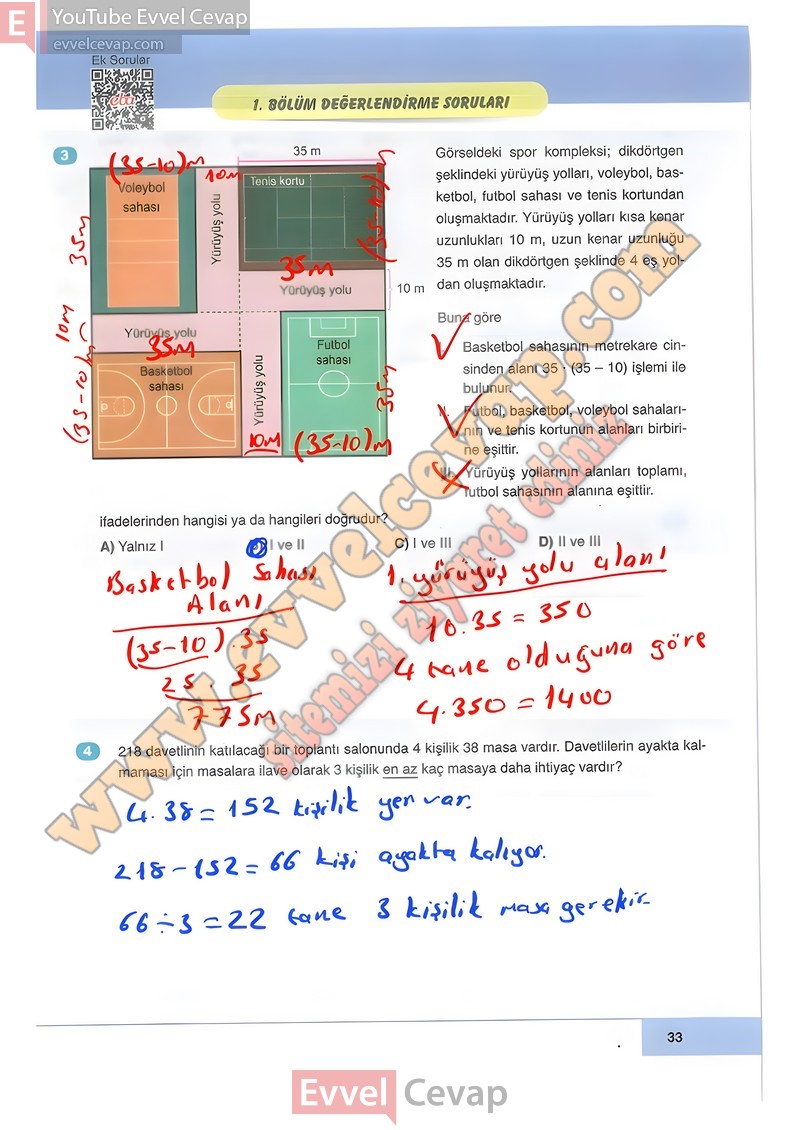 YouTube Evvel Cevap
evvelcevap.com
Ek Sorular
eba
1. BÖLÜM DEĞERLENDİRME SORULARI
3
(35-10)m
35 m
Voleybol
sahası
10m
Yürüyüş yolu
Tenis kortu
(35-10)m
35m
35m
Yürüyüş yolu
10 m
10m
Yürüyüş yolu
35m
Basketbol
sahası
(35-10)m
Yürüyüş yolu
10m
Futbol
sahası
35m
(35-10)m
Görseldeki spor kompleksi; dikdörtgen
şeklindeki yürüyüş yolları, voleybol, bas-
ketbol, futbol sahası ve tenis kortundan
oluşmaktadır. Yürüyüş yolları kısa kenar
uzunlukları 10 m, uzun kenar uzunluğu
35 m olan dikdörtgen şeklinde 4 eş yol-
dan oluşmaktadır.
Buna göre
Basketbol sahasının metrekare cin-
sinden alanı 35 · (35 – 10) işlemi ile
bulunur.
Futbol, basketbol, voleybol sahaları-
nın ve tenis kortunun alanları birbiri-
ne eşittir.
III. Yürüyüş yollarının alanları toplamı,
futbol sahasının alanına eşittir.
ifadelerinden hangisi ya da hangileri doğrudur?
A) Yalnız I
B) I ve II
C) I ve III
D) II ve III
Basketbol Sahası
Alanı
(35-10).35
25.35
775m
1. yürüyüş yolu alanı
10.35=350
4 tane olduğuna göre
4.350=1400
4
218 davetlinin katılacağı bir toplantı salonunda 4 kişilik 38 masa vardır. Davetlilerin ayakta kal-
maması için masalara ilave olarak 3 kişilik en az kaç masaya daha ihtiyaç vardır?
4.38=152 kişilik yer var.
218-152=66 kişi ayakta kalıyor.
66÷3=22 tane 3 kişilik masa gerekir.
www.evvelcevap.com
sitemizi ziyaret ediniz
33
Evvel Cevap